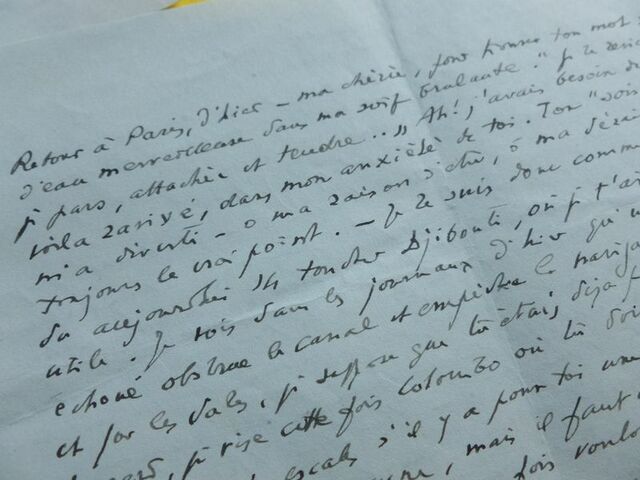 Retour à Paris, d'hier – ma chérie, pour trouver ton mot
d'eau merveilleuse dans ma soif brulante " je te
je pars, attachée et tendre .. " Ah! j'avais besoin de
voila rassuré, dans mon anxiété de toi. Ton " sois
m'a diverti – o ma raison d'être, ô ma
toujours le vrai point. – Je te suis donc comme
du aujourd'hui toucher Djibouti, où je t'ai
utile. Je vois dans les journaux d'hier qu'un
echoué obstrue le canal et empêche la naviga
et par les dates, je suppose que tu étais déjà
je vise cette fois Colombo où tu dois
escale s'il y a pour toi une
mais il faut
fois voulo